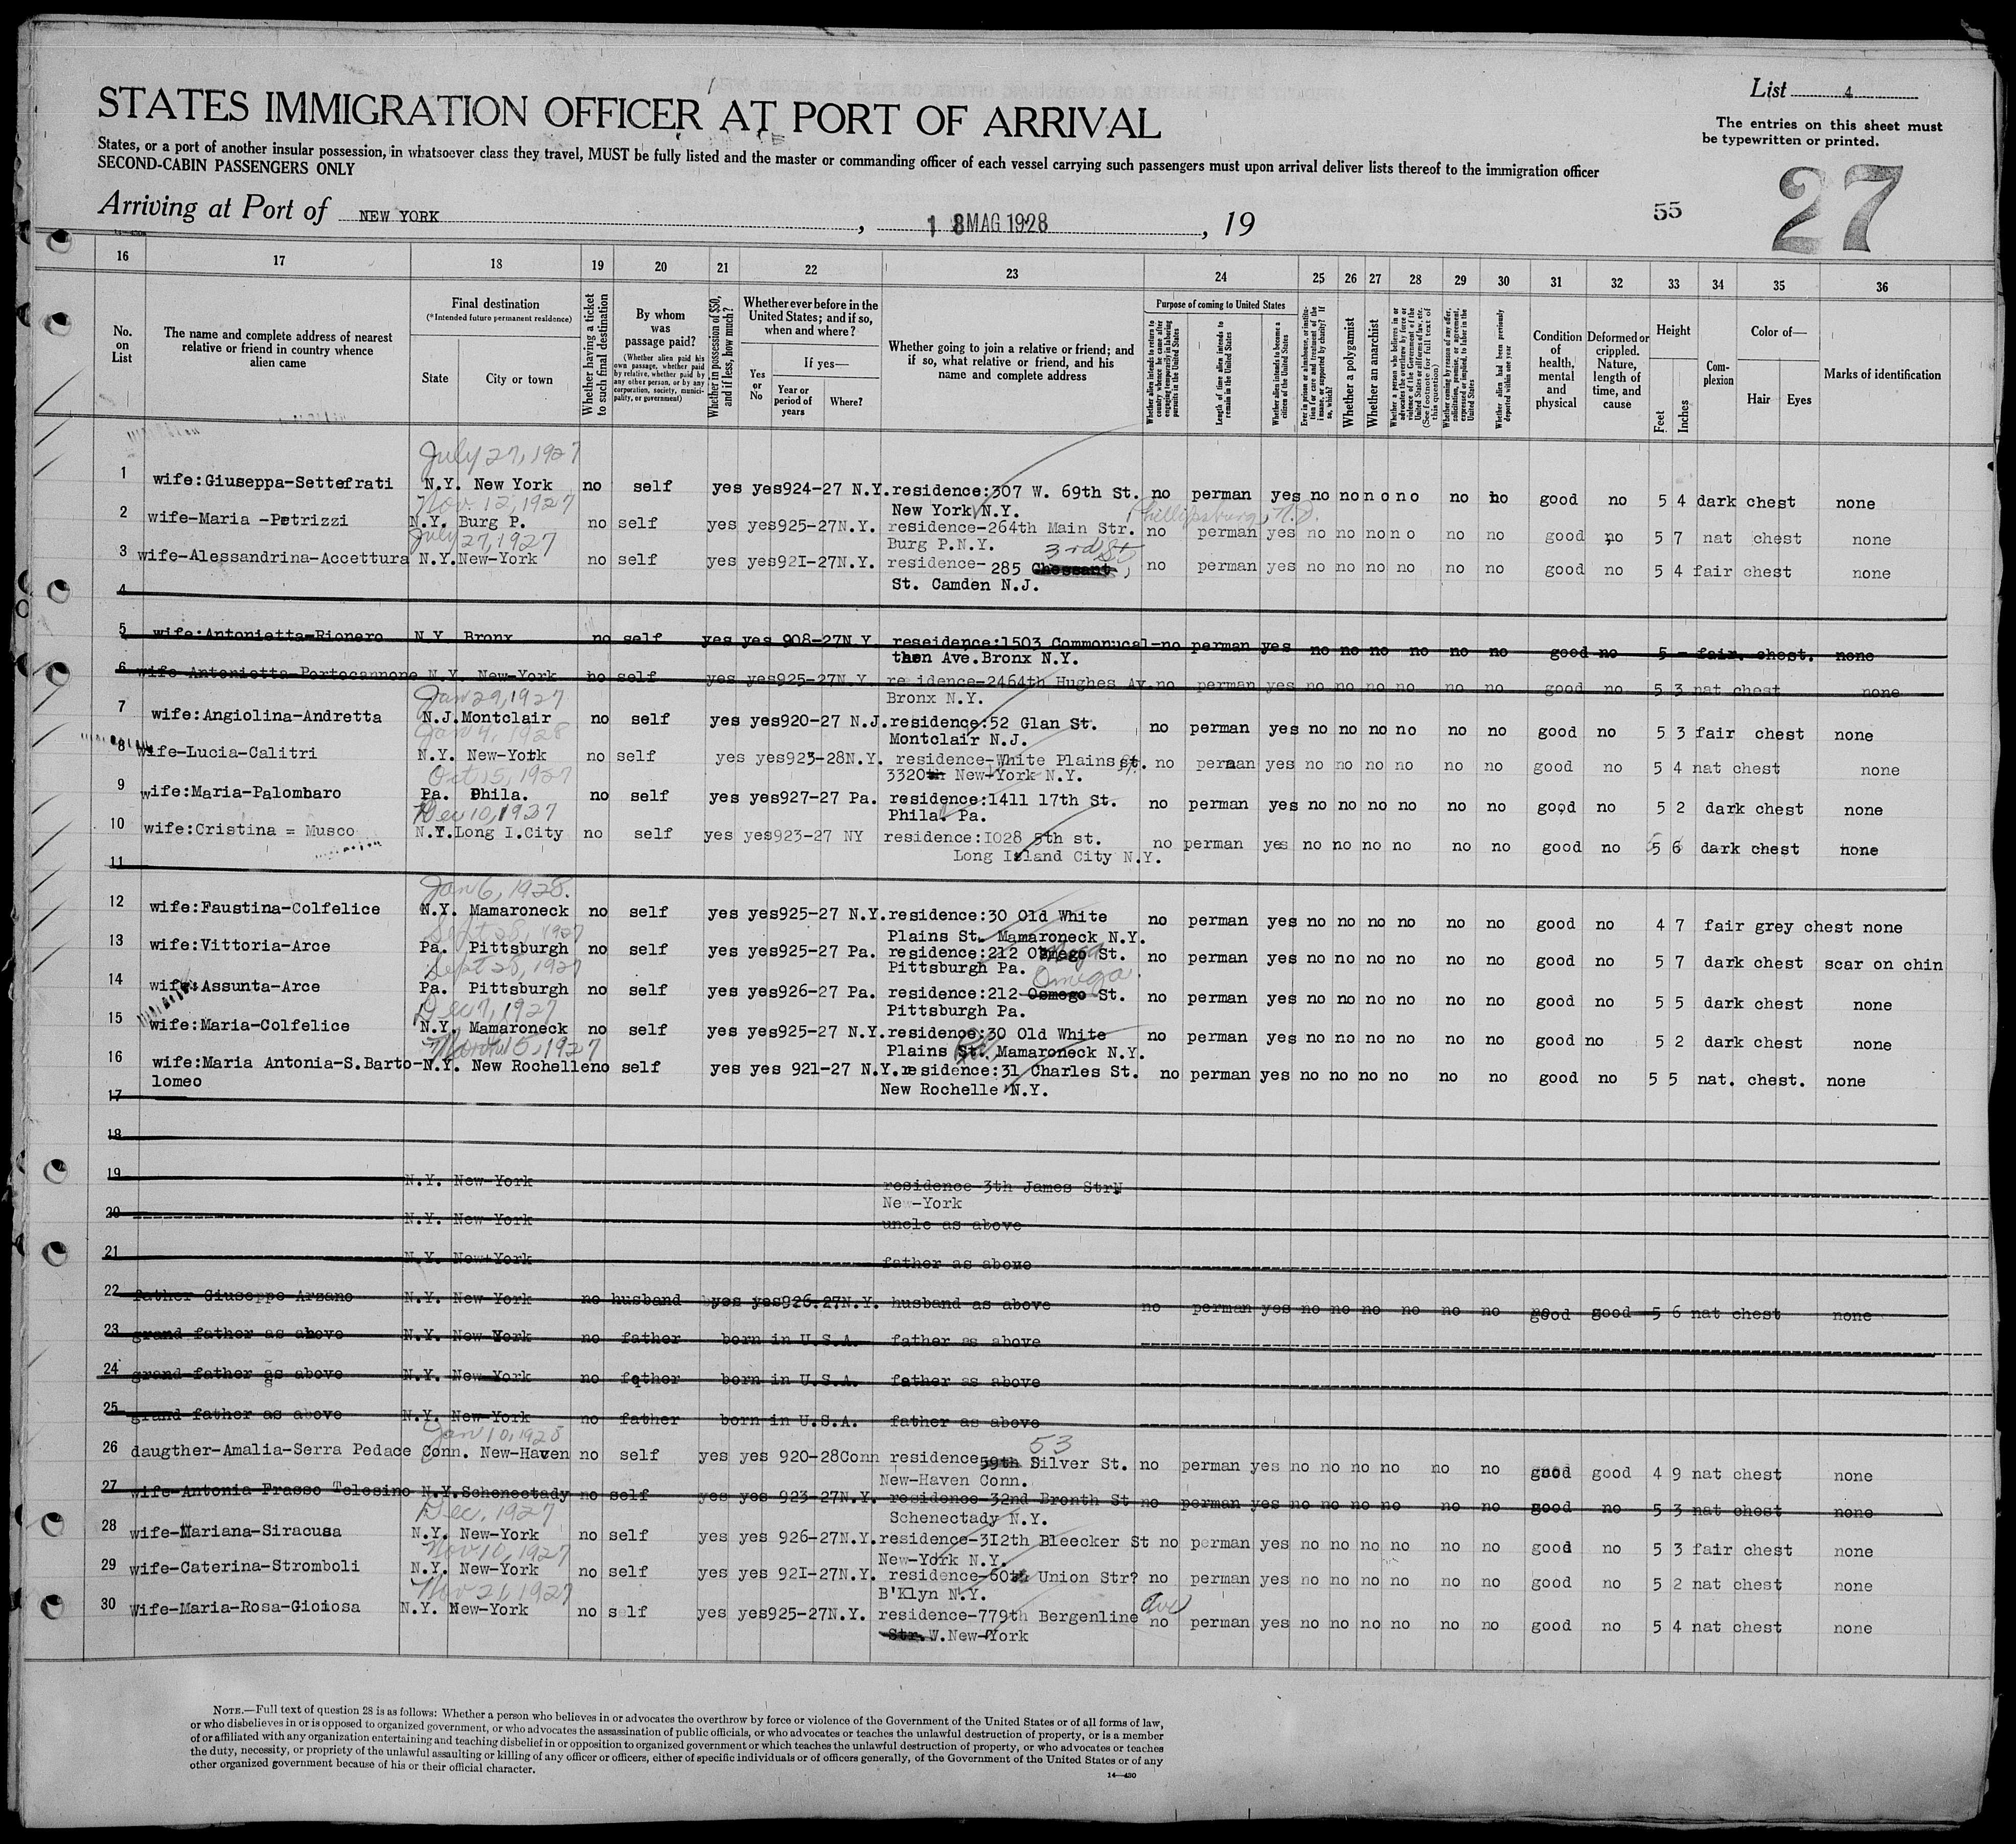 List 4
STATES IMMIGRATION OFFICER AT PORT OF ARRIVAL
The entries on this sheet must
be typewritten or printed.
States, or a port of another insular possession, in whatsoever class they travel, MUST be fully listed and the master or commanding officer of each vessel carrying such passengers must upon arrival deliver lists thereof to the immigration officer
SECOND-CABIN PASSENGERS ONLY
27
Arriving at Port of NEW YORK, 18 MAG 1928, 19
55
16 17 18 19 20 21 22 23 24 25 26 27 28 29 30 31 32 33 34 35 36
No. on List
The name and complete address of nearest relative or friend in country whence alien came
Final destination
(*Intended future permanent residence)
State City or town
Whether having a ticket to such final destination
By whom was passage paid?
(Whether alien paid his own passage, whether paid by relative, whether paid by any other person, or by any corporation, society, municipality, or government)
Whether in possession of $50, and if less, how much?
Whether ever before in the United States; and if so, when and where?
Yes or No
If yes—
Year or period of years
Where?
Whether going to join a relative or friend; and if so, what relative or friend, and his name and complete address
Purpose of coming to United States
Whether alien intends to return to country whence he came after engaging temporarily in laboring pursuits in the United States
Length of time alien intends to remain in the United States
Whether alien intends to become a citizen of the United States
Ever in prison or almshouse, or institution for care and treatment of the insane, or supported by charity? If so, which?
Whether a polygamist
Whether an anarchist
Whether a person who believes in or advocates the overthrow by force or violence of the Government of the United States or all forms of law, etc. (See footnote for full text of this question)
Whether coming by reason of any offer, solicitation, promise, or agreement, expressed or implied, to labor in the United States
Whether alien had been previously deported within one year
Condition of health, mental and physical
Deformed or crippled. Nature, length of time, and cause
Height
Feet Inches
Complexion
Color of—
Hair Eyes
Marks of identification
July 27, 1927
1 wife:Giuseppa-Settefrati N.Y. New York no self yes yes924-27 N.Y.residence:307 W. 69th St. no perman yes no no no no no no good no 5 4 dark chest none
New York N.Y.
Nov. 12, 1927 Phillipsburg, N.J.
2 wife-Maria -Petrizzi N.Y. Burg P. no self yes yes925-27N.Y. residence-264th Main Str. no perman yes no no no no no no good no 5 7 nat chest none
Burg P.N.Y.
July 27, 1927 3rd St
3 wife-Alessandrina-Accettura N.Y.New-York no self yes yes92I-27N.Y. residence- 285 Chessant, no perman yes no no no no no no good no 5 4 fair chest none
St. Camden N.J.
4
5 wife:Antonietta-Rionero N.Y. Bronx no self yes yes 908-27N.Y reseidence:1503 Commonucal-no perman yes no no no no no no good no 5 - fair. chest. none
then Ave.Bronx N.Y.
6 wife-Antonietta-Portocannone N.Y. New-York no self yes yes925-27N.Y. residence-2464th Hughes Av.no perman yes no no no no no no good no 5 3 nat chest none
Bronx N.Y.
Jan 29, 1927
7 wife:Angiolina-Andretta N.J.Montclair no self yes yes920-27 N.J.residence:52 Glan St. no perman yes no no no no no no good no 5 3 fair chest none
Montclair N.J.
8 wife-Lucia-Calitri N.Y. New-York no self yes yes923-28N.Y. residence-White Plains st. no perman yes no no no no no no good no 5 4 nat chest none
3320th New-York N.Y.
Oct 15, 1927
9 wife:Maria-Palombaro Pa. Phila. no self yes yes927-27 Pa. residence:1411 17th St. no perman yes no no no no no no good no 5 2 dark chest none
Phila. Pa.
Dec 10, 1927
10 wife:Cristina = Musco N.Y.Long I.City no self yes yes923-27 NY residence:I028 5th st. no perman yes no no no no no no good no 5 6 dark chest none
Long Island City N.Y.
11
Jan 6, 1928.
12 wife:Faustina-Colfelice N.Y. Mamaroneck no self yes yes925-27 N.Y.residence:30 Old White no perman yes no no no no no no good no 4 7 fair grey chest none
Plains St. Mamaroneck N.Y.
Sept 28, 1927
13 wife:Vittoria-Arce Pa. Pittsburgh no self yes yes925-27 Pa. residence:212 St. no perman yes no no no no no no good no 5 7 dark chest scar on chin
Pittsburgh Pa.
Sept 28, 1927 Omega
14 wife:Assunta-Arce Pa. Pittsburgh no self yes yes926-27 Pa. residence:212 Osmego St. no perman yes no no no no no no good no 5 5 dark chest none
Pittsburgh Pa.
Dec 7, 1927
15 wife:Maria-Colfelice N.Y. Mamaroneck no self yes yes925-27 N.Y.residence:30 Old White no perman yes no no no no no no good no 5 2 dark chest none
Plains St. Mamaroneck N.Y.
16 wife:Maria Antonia-S.Barto- N.Y. New Rochelle no self yes yes 921-27 N.Y.residence:31 Charles St. no perman yes no no no no no no good no 5 5 nat. chest. none
lomeo New Rochelle N.Y.
17
18
19 N.Y. New-York residence-3th James Str
New-York
20 N.Y. New-York uncle as above
21 N.Y. New-York father as above
22 father Giuseppe Arzano N.Y. New-York no husband yes yes926.27N.Y. husband as above no perman yes no no no no no no good good 5 6 nat chest none
23 grand father as above N.Y. New York no father born in U.S.A. father as above
24 grand father as above N.Y. New York no father born in U.S.A. father as above
25 grand father as above N.Y. New-York no father born in U.S.A. father as above
Jan 10, 1928 53
26 daugther-Amalia-Serra Pedace Conn. New-Haven no self yes yes 920-28Conn residence 59th Silver St. no perman yes no no no no no no good good 4 9 nat chest none
New-Haven Conn.
27 wife-Antonia Frasso Telesino N.Y.Schenectady no self yes yes 923-27N.Y. residence-32nd Bronth St no perman yes no no no no no no good no 5 3 nat chest none
Schenectady N.Y.
Dec. 1927
28 wife-Mariana-Siracusa N.Y. New-York no self yes yes 926-27N.Y.residence-3I2th Bleecker St no perman yes no no no no no no good no 5 3 fair chest none
New-York N.Y.
Nov 10, 1927
29 wife-Caterina-Stromboli N.Y. New-York no self yes yes 92I-27N.Y. residence-60th Union Str? no perman yes no no no no no no good no 5 2 nat chest none
B'Klyn N.Y.
Nov 21, 1927 Ave
30 wife-Maria-Rosa-Gioiosa N.Y. New-York no self yes yes925-27N.Y. residence-779th Bergenline no perman yes no no no no no no good no 5 4 nat chest none
Str. W.New-York
NOTE.—Full text of question 28 is as follows: Whether a person who believes in or advocates the overthrow by force or violence of the Government of the United States or of all forms of law,
or who disbelieves in or is opposed to organized government, or who advocates the assassination of public officials, or who advocates or teaches the unlawful destruction of property, or is a member
of or affiliated with any organization entertaining and teaching disbelief in or opposition to organized government or which teaches the unlawful destruction of property, or who advocates or teaches
the duty, necessity, or propriety of the unlawful assaulting or killing of any officer or officers, either of specific individuals or of officers generally, of the Government of the United States or of any
other organized government because of his or their official character.
14—430